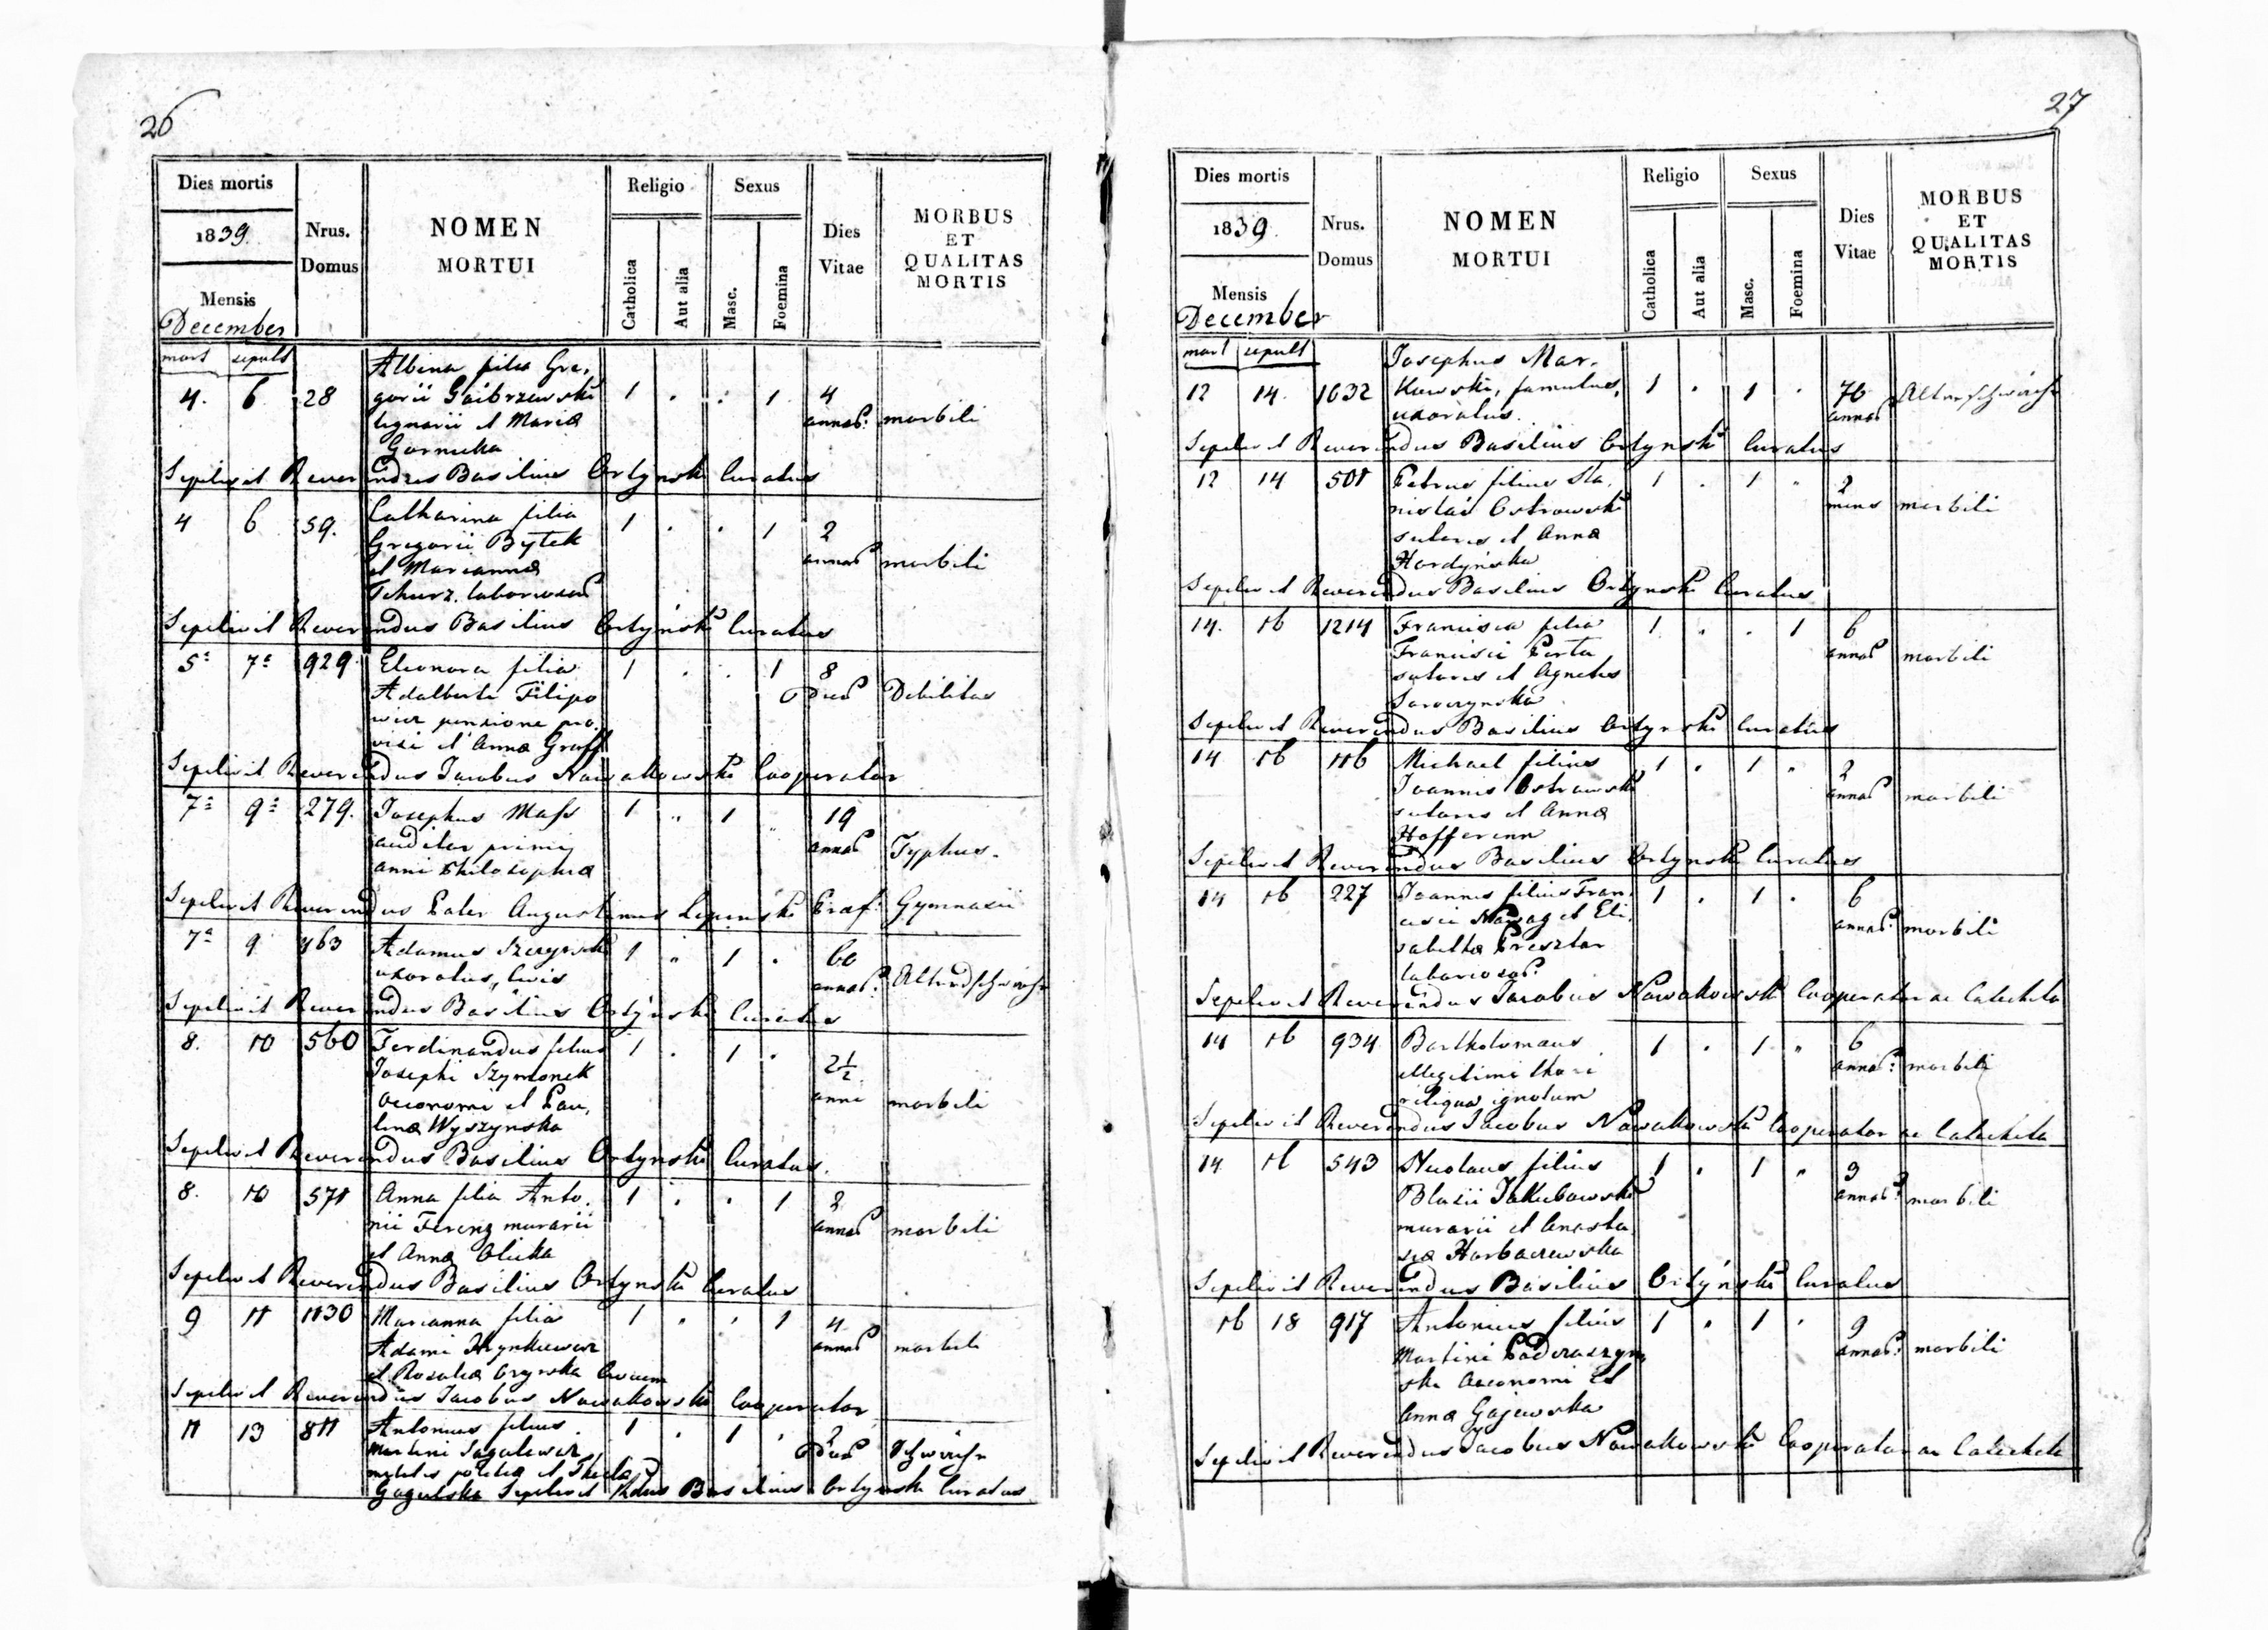 26
Dies mortis
1839.
Mensis
December
Nrus.
Domus
NOMEN
MORTUI
Religio
Catholica
Aut alia
Sexus
Masc.
Foemina
Dies
Vitae
MORBUS
ET
QUALITAS
MORTIS
mort sepult
Albina filia Gre,
4. 6 28 gorii 1 . . 1 4
lignarii et Maria annos morbili
Sepelivit Reverendus Basilius Ortynski Curatus
4 6 59. Catharina filia 1 . . 1 2
Gregorii Bytek annos morbili
et Marianna
laborios
Sepelivit Reverendus Basilius Ortyński Curatus
5ª 7ª 929 Eleonora filia 1 . . 1 8
Adalberti Filipo Dies Debilitas
wicz pensione pro,
visi et Anna Graff
Sepelivit Reverendus Jacobus Nowakowski Cooperator
7ª 9ª 279. Josephus Mass 1 " 1 " 19
auditor primi annos Typhus.
anni Philosophia
Sepelivit Reverendus Pater Augustinus Præf. Gymnasii
7ª 9 Adamus 1 " 1 . 60
uxoratus, Civis annos
Sepelivit Reverendus Basilius Ortyński Curatus
8. 10 560 Ferdinandus filius 1 . 1 . 2½
Josephi Szymonek anni morbili
Oeconomi et Pau,
lina Wyszynska
Sepelivit Reverendus Basilius Ortynski Curatus.
8. 10 571 Anna filia Anto, 1 . . 1 2
nii Ferenz murarii annos morbili
et Anna
Sepelivit Reverendus Basilius Ortynski Curatus
9 11 1130 Marianna filia 1 " . 1 4
Adami annos morbili
et Rosalia Civium
Sepelivit Reverendus Jacobus Nowakowski Cooperator
11 13 811 Antonius filius 1 . 1 . 2
Martini Dies Schwäche
militis politia et Thecla
Sepelivit Rdus Basilius Ortynski Curatus
27
Dies mortis
1839.
Mensis
December
Nrus.
Domus
NOMEN
MORTUI
Religio
Catholica
Aut alia
Sexus
Masc.
Foemina
Dies
Vitae
MORBUS
ET
QUALITAS
MORTIS
mort sepult
Josephus Mar,
12 14. 1032 kowski, famulus, 1 . 1 . 76 Altersschwäche
uxoratus. annos
Sepelivit Reverendus Basilius Ortynski Curatus
12 14 501 Petrus filius Sta, 1 . 1 " 2
nislai Ostrowski mens morbili
sutoris et Anna
Hordyńska
Sepelivit Reverendus Basilius Ortynski Curatus
14. 16 1214 Francisca filia 1 . . 1 6
Francisci Perta annos morbili
sutoris et Agnetis
Sepelivit Reverendus Basilius Ortynski Curatus
14 16 116 Michael filius 1 . 1 " 2
Joannis Ostrowski annos morbili
sutoris et Anna
Sepelivit Reverendus Basilius Ortynski Curatus
14 16 227 Joannes filius Fran, 1 . 1 . 6
cisci et Eli, annos morbili
sabetha Presztar
laborios.
Sepelivit Reverendus Jacobus Nowakowski Cooperator ac Catecheta
14 16 934 Bartholomaus 1 . 1 " 6
illegitimi thori annos morbili
reliqua ignotum
Sepelivit Reverendus Jacobus Nowakowski Cooperator ac Catecheta
14 16 543 Nicolaus filius 1 . 1 " 3
Blasii Jakubowski annos morbili
murarii et Anasta,
sia Horbaczewska
Sepelivit Reverendus Basilius Ortyński Curatus
16 18 917 Antonius filius 1 . 1 . 9
Martini annos morbili
ski Oeconomi et
Anna Gajewska
Sepelivit Reverendus Jacobus Nowakowski Cooperator ac Catecheta